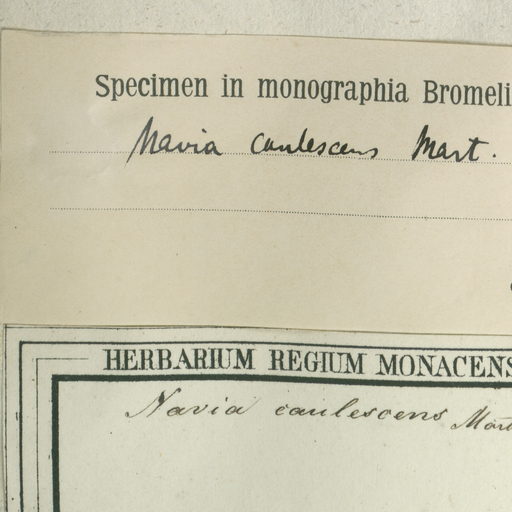 Specimen in monographia Bromeli
Navia caulescens Mart.
HERBARIUM REGIUM MONACENS
Navia caulescens Mart